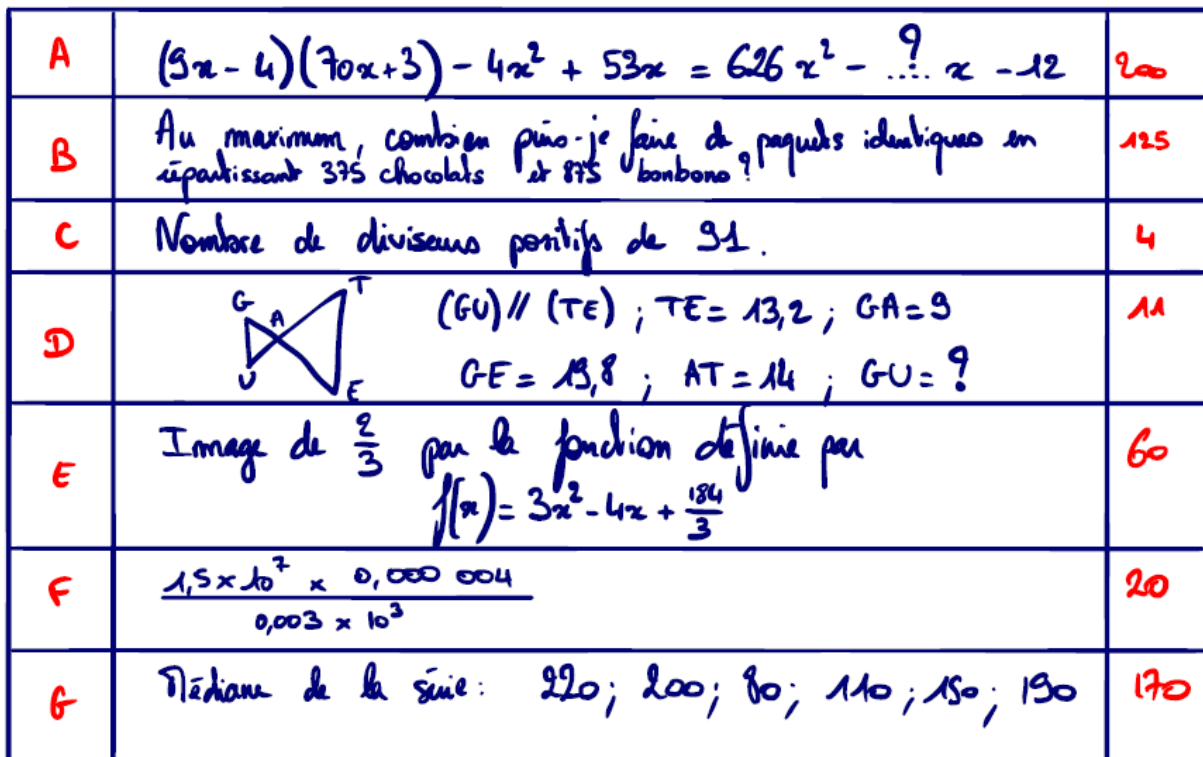 A (9x - 4)(70x+3) - 4x² + 53x = 626x² - ..?.. x - 12 200
B Au maximum, combien puis-je faire de paquets identiques en
répartissant 375 chocolats et 875 bonbons ? 125
C Nombre de diviseurs positifs de 91. 4
G T A U E
D (GU) // (TE) ; TE = 13,2 ; GA = 9 11
GE = 19,8 ; AT = 14 ; GU = ?
E Image de 2/3 par la fonction définie par 60
f(x) = 3x² - 4x + 184/3
F 1,5 × 10⁷ × 0,000 004 20
0,003 × 10³
G Médiane de la série : 220 ; 200 ; 80 ; 110 ; 150 ; 190 170